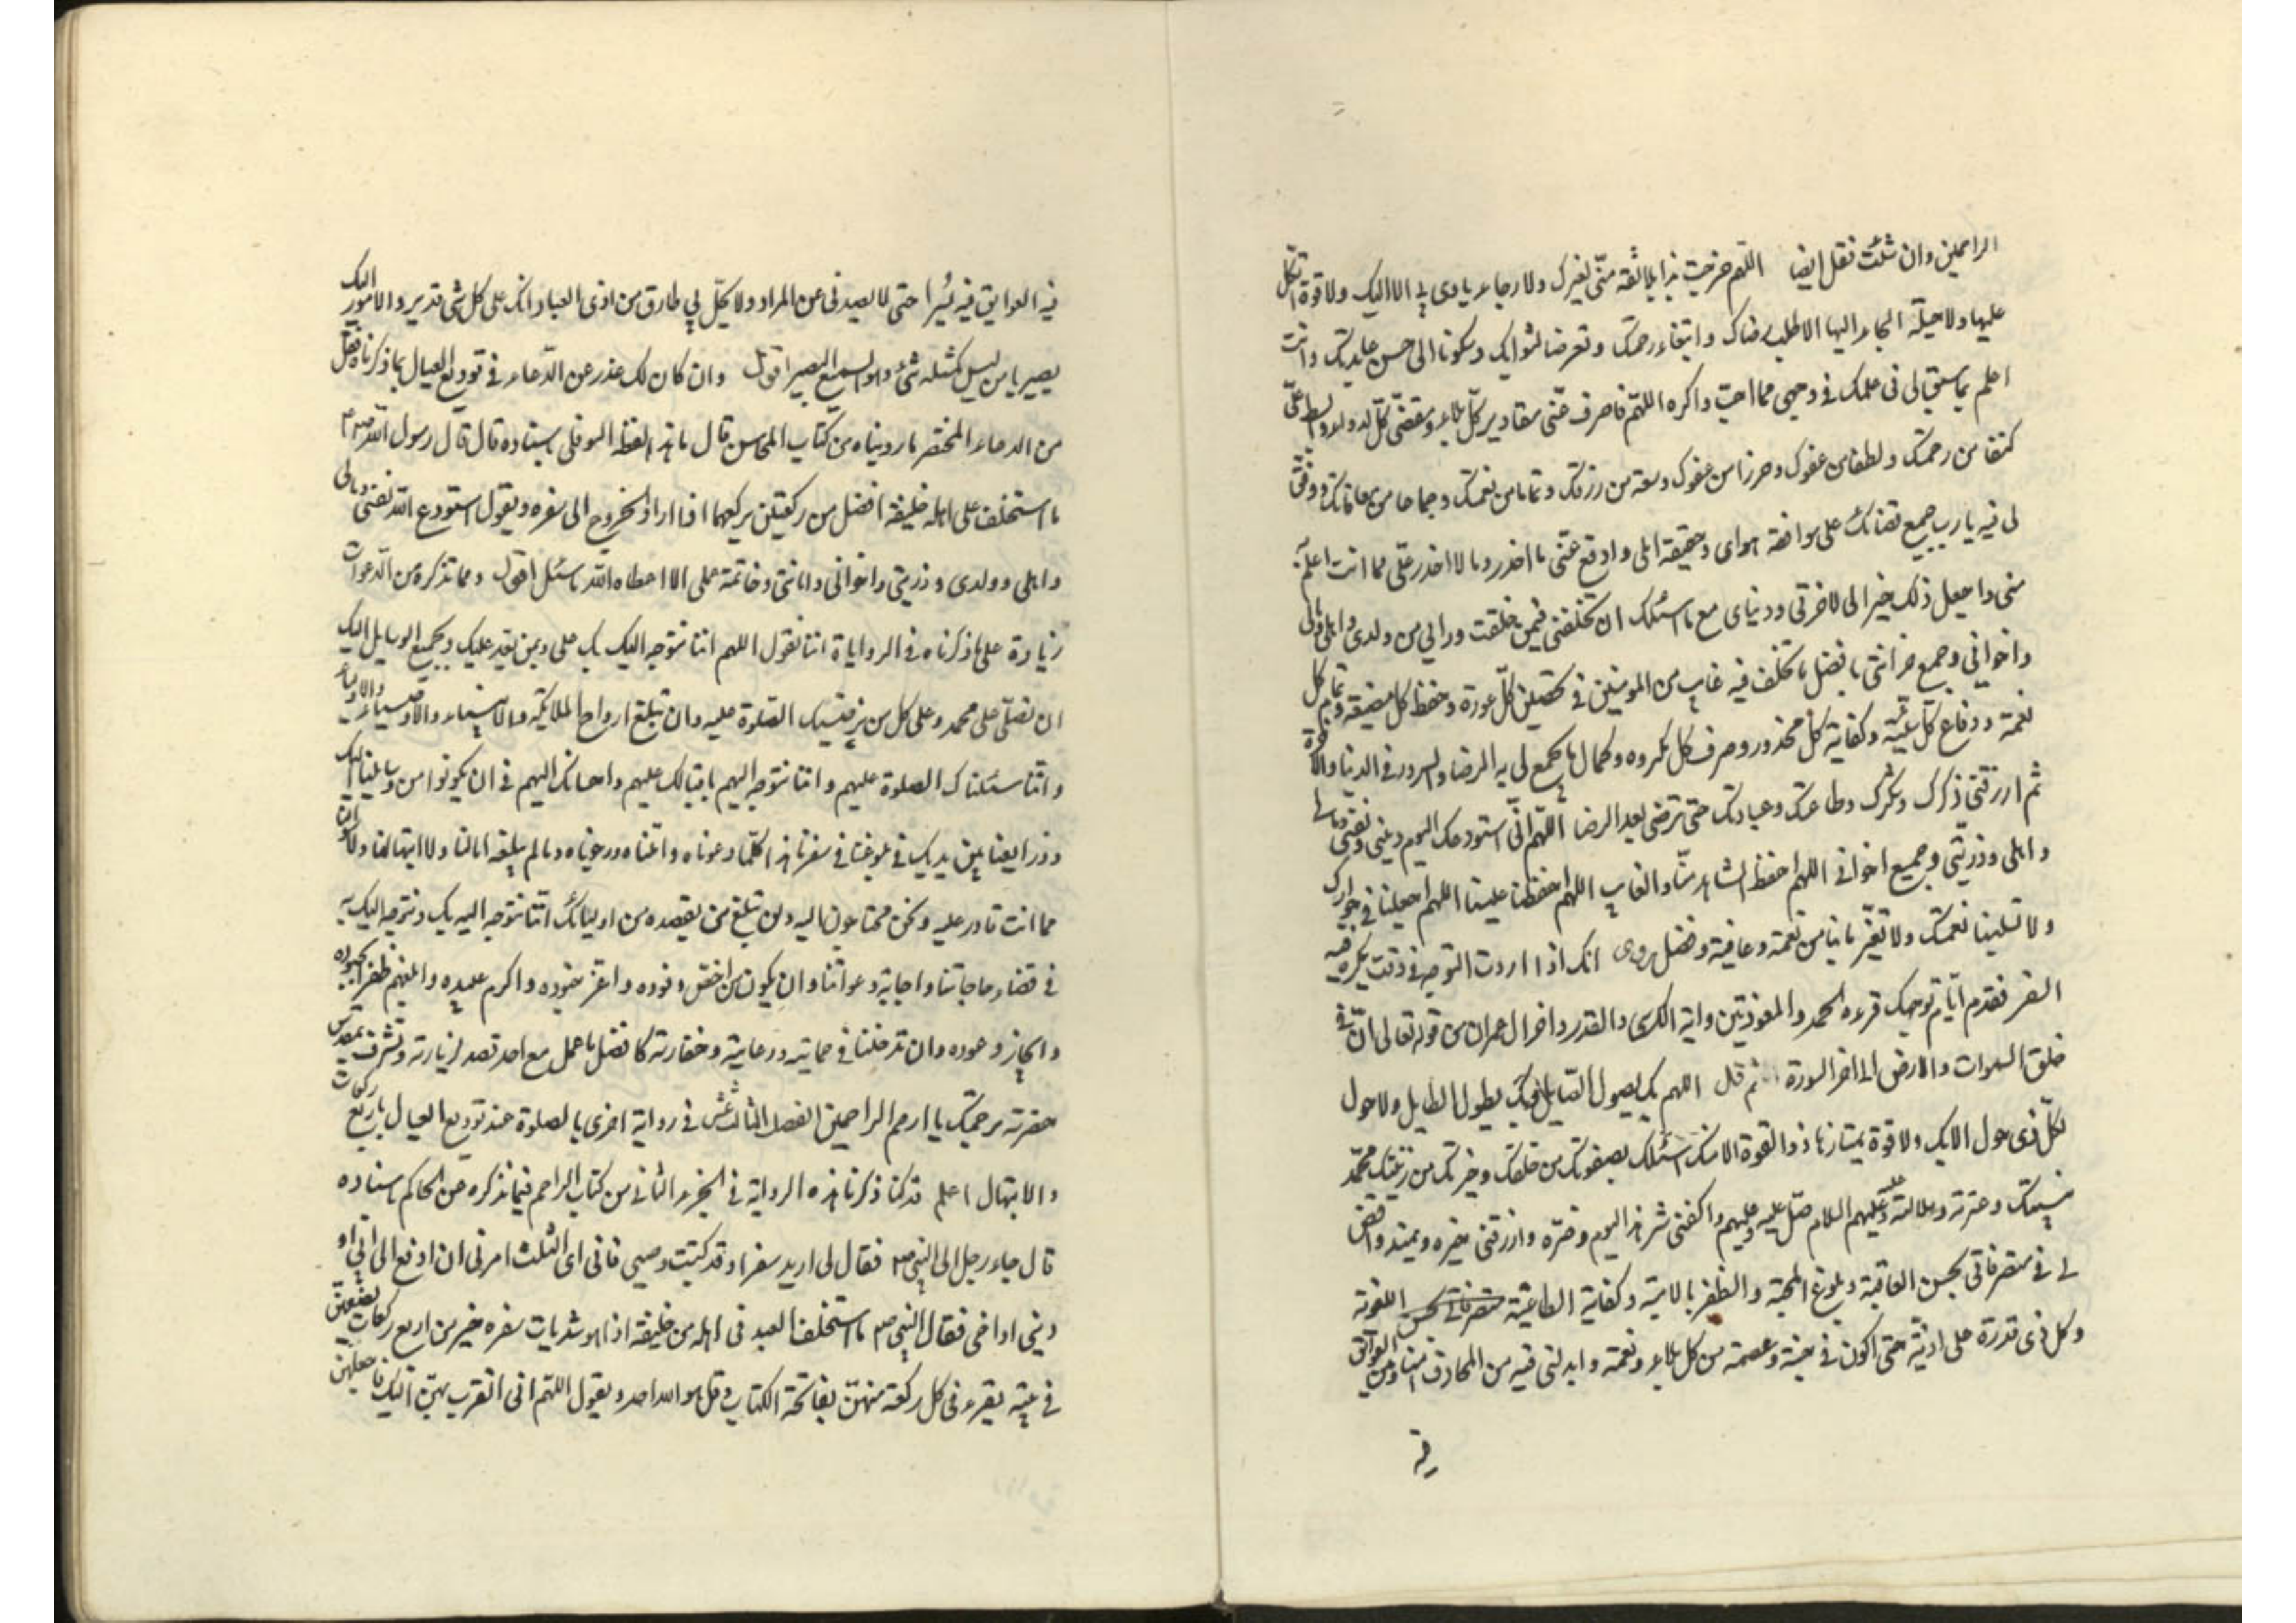 الراحمين وان شئت فقل ايضا اللهم خرجت بلا ثقة منى بغيرك ولا رجاء ياوى بى الا اليك ولا قوة اتكل
عليها ولا حيلة الجاء اليها الا طلب رضاك وابتغاء رحمتك وتعرضا لثوابك وسكونا الى حسن عايدتك وانت
اعلم بما سبق لى فى علمك فى وجهى مما احب واكره اللهم فاصرف عنى مقادير كل بلاء ومقضى كل لاواء وابسط على
كنفا من رحمتك ولطفا من عفوك وحرزا من عفوك وسعة من رزقك وتماما من نعمتك وجماعا من معافاتك ووفق
لى فيه يا رب جميع قضائك على موافقة هواى وحقيقة املى وادفع عنى ما احذر وما لا احذر على مما انت اعلم به
منى واجعل ذلك خيرا لى لاخرتى ودنياى مع ما اسئلك ان تخلفنى فيمن خلفت ورائى من ولدى واهلى ومالى
واخوانى وجميع حزانتى بافضل ما تخلف فيه غايبا من المومنين فى تحصين كل عورة وحفظ كل مضيعة وتمام كل
نعمة ودفاع كل سيئة وكفاية كل محذور وصرف كل مكروه وكمال ما تجمع لى به الرضا والسرور فى الدنيا والاخرة
ثم ارزقنى ذكرك وشكرك وطاعتك وعبادتك حتى ترضى بعد الرضا اللهم انى استودعك اليوم دينى ونفسى ومالى
واهلى وذريتى وجميع اخوانى اللهم احفظ الشاهد منا والغايب اللهم احفظنا واحفظ علينا اللهم اجعلنا فى جوارك
ولا تسلبنا نعمتك ولا تغير ما بنا من نعمة وعافية وفضل وروى انك اذا اردت التوجه فى وقت يكره فيه
السفر فقدم امام توجهك قرءة الحمد والمعوذتين واية الكرسى والقدر واخر ال عمران من قوله تعالى ان فى
خلق السموات والارض الى اخر السورة ثم قل اللهم بك يصول الصايل وبك يطول الطايل ولا حول
لكل ذى حول الا بك ولا قوة يمتازها ذو القوة الا منك اسئلك بصفوتك من خلقك وخيرتك من بريتك محمد
نبيك وعترته وسلالته عليه وعليهم السلام صل عليه وعليهم واكفنى شر هذا اليوم وضره وارزقنى خيره ويمنه واقض
لى فى متصرفاتى بحسن العاقبة وبلوغ المحبة والظفر بالامنية وكفاية الطاغية الغوية
وكل ذى قدرة على اذية حتى اكون فى جنة وعصمة من كل بلاء ونقمة وابدلنى فيه من المخاوف امنا ومن العوائق
فيه
فيه العوايق فيه يسرا حتى لا يصدنى عن المراد ولا يحل بى طارق من اذى العباد انك على كل شئ قدير والامور اليك
يصير يا من ليس كمثله شئ وهو السميع البصير اقول وان كان لك عذر عن الدعاء فى توديع العيال بما ذكرناه فقل
من الدعاء المختصر ما رويناه من كتاب المحاسن قال ما هذا لفظه النوفلى باسناده قال قال رسول الله ص
ما استخلف على اهله خليفة افضل من ركعتين يركعهما اذا اراد الخروج الى سفره ويقول استودع الله نفسى ومالى
واهلى وولدى وذريتى واخوانى وامانتى وخاتمة عملى الا اعطاه الله ما سئل اقول ومما نذكره من الدعوات
زيادة على ما ذكرناه فى الروايات اننا نقول اللهم اننا نتوجه اليك بك على وبمن يعز عليك وبجميع الوسايل اليك
ان تصلى على محمد وعلى كل من يرضيك الصلوة عليه وان تبلغ ارواح الملائكة والانبياء والاوصياء والاولياء
واننا سئلناك الصلوة عليهم واننا نتوجه اليهم باقبالك عليهم واحسانك اليهم فى ان يكونوا من وسايلنا اليك
وذرايعنا بين يديك فى بلوغنا فى سفرنا هذا كلما دعوناه واملناه ورجوناه وما لم يبلغه امالنا ولا ابتهالنا ولا سؤالنا
مما انت قادر عليه ونحن محتاجون اليه وبان تبلغ من يقصده من اوليائك اننا نتوجه اليه بك ونتوجه اليك به
فى قضاء حاجاتنا واجابة دعواتنا وان يكون من اخص وفوده واعز جنوده واكرم عبيده وابلغهم ظفرا بجوده
وانجاز وعوده وان تدخلنا فى حمايته ورعايته وخفارته كافضل ما عمل مع احد قصد لزيارته وتشرف بمقدس
حضرته برحمتك يا ارحم الراحمين الفصل الثالث عشر فى رواية اخرى بالصلوة عند توديع العيال باربع ركعات
والابتهال اعلم قد كنا ذكرنا هذه الرواية فى الجزء الثانى من كتاب التراجم فيما نذكره عن الحاكم باسناده
قال جاء رجل الى النبى ص فقال انى اريد سفرا وقد كتبت وصيى فانى اى الثلث امرنى ان ادفع الى ابى او
ابنى او اخى فقال النبى ص ما استخلف العبد فى اهله من خليفة اذا هو شد ثياب سفره خير من اربع ركعات يضعهن
فى بيته يقرء فى كل ركعة منهن بفاتحة الكتاب وقل هو الله احد ويقول اللهم انى اتقرب بهن اليك فاجعلهن